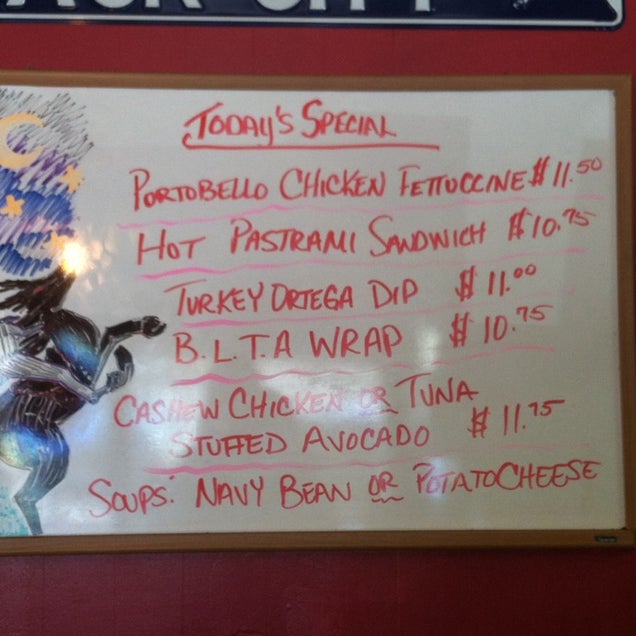 TODAY'S SPECIAL
PORTOBELLO CHICKEN FETTUCCINE $11.50
HOT PASTRAMI SANDWICH $10.75
TURKEY ORTEGA DIP $11.00
B.L.T.A WRAP $10.75
CASHEW CHICKEN OR TUNA
STUFFED AVOCADO $11.75
SOUPS: NAVY BEAN OR POTATO CHEESE